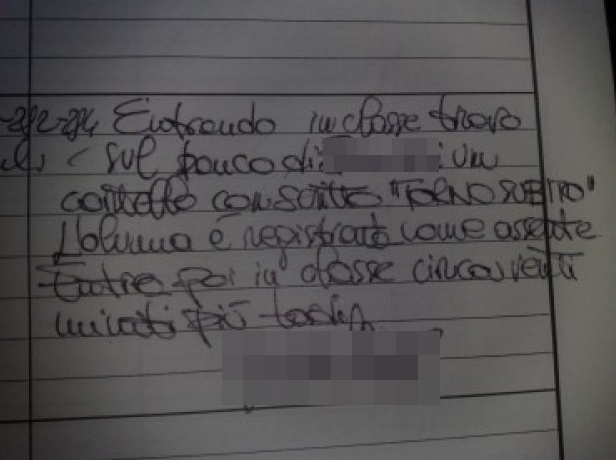 Entrando in classe trovo
sul banco di un
cartello con scritto "TORNO SUBITO"
L'alunna è registrata come assente
Entra poi in classe circa venti
minuti più tardi